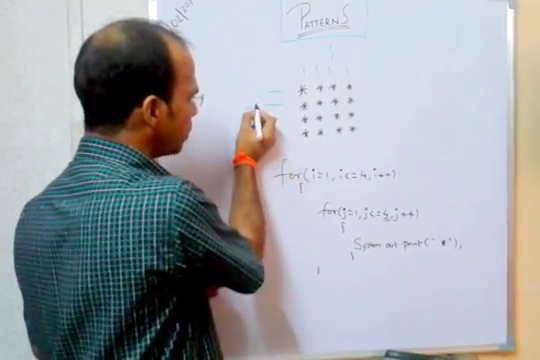 02/20
PATTERNS
* * * *
* * * *
* * * *
* * * *
for(i=1, i<=4, i++)
{
for(j=1, j<=4, j++)
{
System out print(" *"),
}